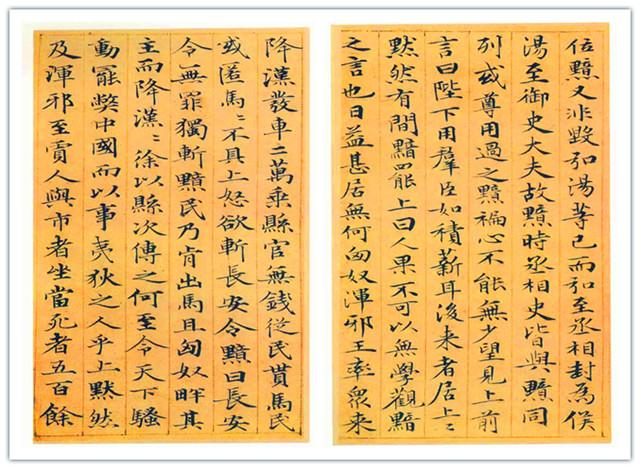 位黯又非毀弘湯等已而弘至丞相封為侯
湯至御史大夫故黯時丞相史皆與黯同
列或尊用過之黯褊心不能無少望見上前
言曰陛下用羣臣如積薪耳後来者居上〻
黙然有間黯罷上曰人果不可以無學觀黯
之言也日益甚居無何匈奴渾邪王率衆来
降漢發車二萬乗縣官無錢從民貰馬民
或匿馬〻不具上怒欲斬長安令黯曰長安
令無罪獨斬黯民乃肯出馬且匈奴畔其
主而降漢〻徐以縣次傳之何至令天下騷
動罷獘中國而以事夷狄之人乎上黙然
及渾邪至賈人與市者坐當死者五百餘